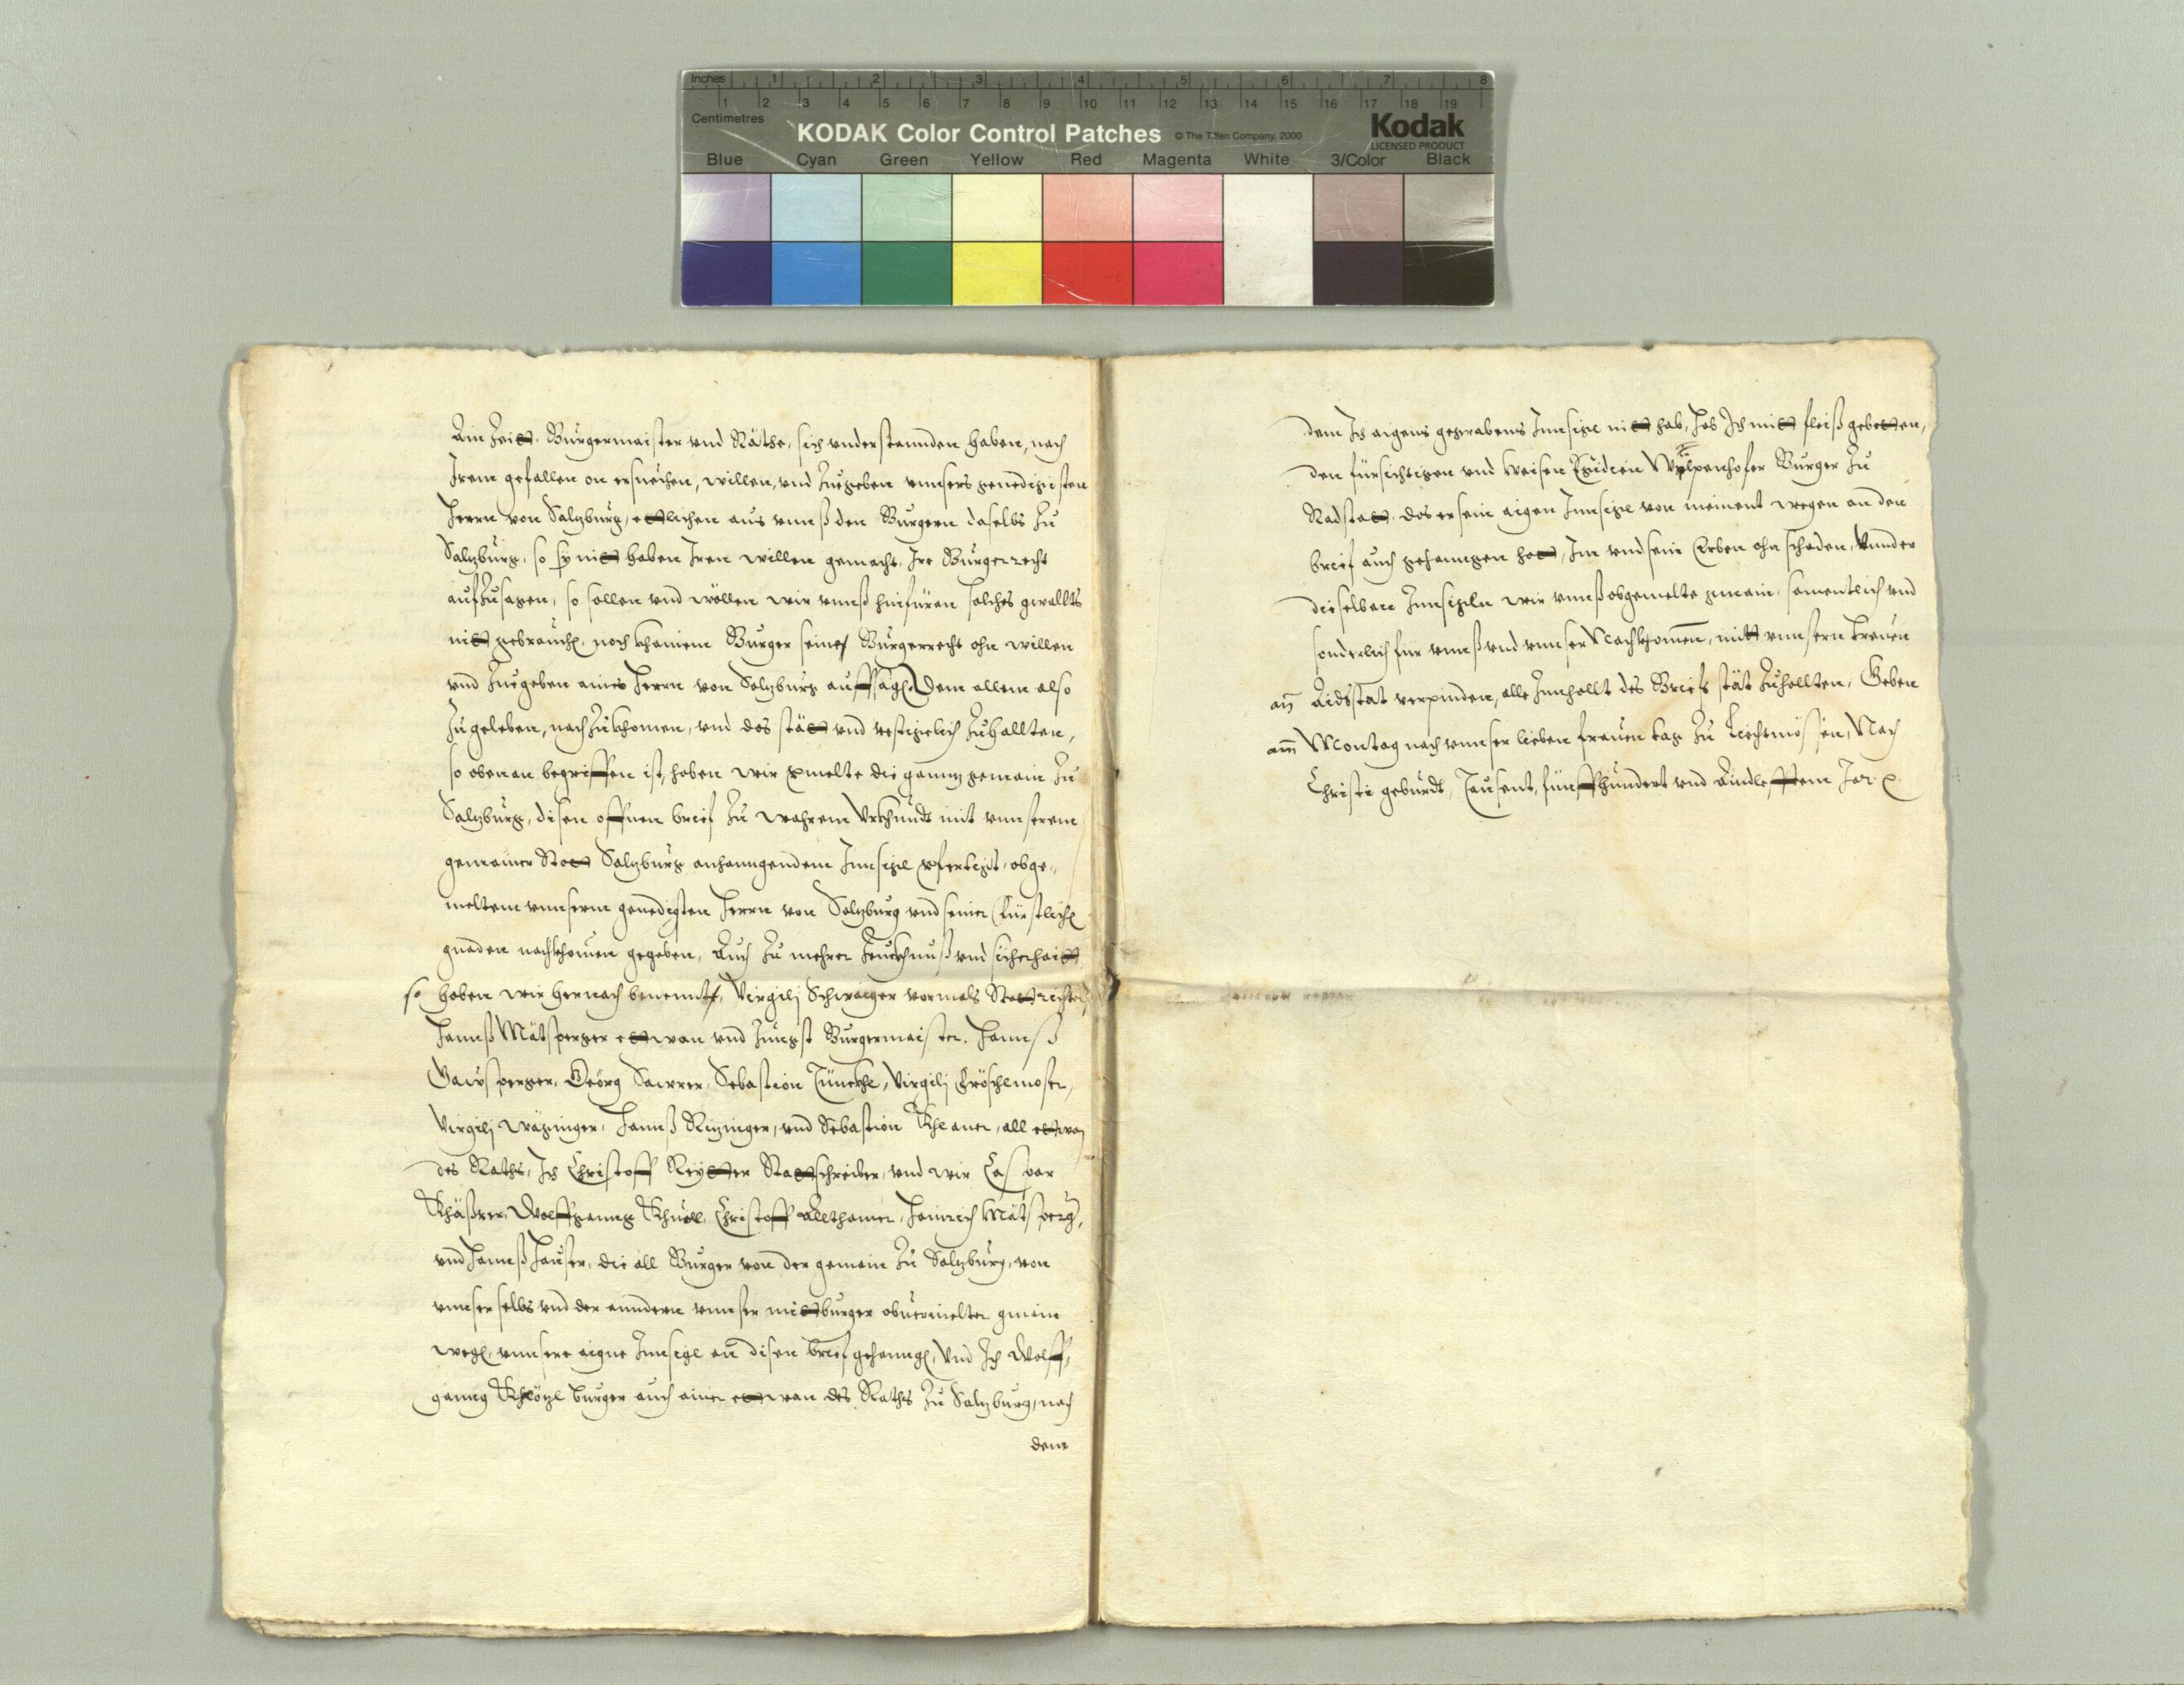 Inches 1 2 3 4 5 6 7 8
1 2 3 4 5 6 7 8 9 10 11 12 13 14 15 16 17 18 19
Centimetres
KODAK Color Control Patches © The Tiffen Company, 2000 Kodak
LICENSED PRODUCT
Blue Cyan Green Yellow Red Magenta White 3/Color Black
Ain Zeitt, Burgermaister vnd Räthe, sich vnderstannden haben, nach
Irem gefallen on ersuechen, willen, vnd Zuegeben vnnsers genedigisten
Herrn von Salzburg, ettlichen aus vnnß den Burgern daselbs Zu
Salzburg, so sy nitt haben Iren willen gemacht, Ire Burgerrecht
aufzusagen, so sollen vnd wöllen wir vnnß hinfüran solches gwallts
nitt gebrauchen, noch khainem Burger seines Burgerrecht ohn willen
vnd Zuegeben aines Herrn von Salzburg auffsagen. Dem allem also
Zugeleben, nachzukhomen, vnd das stätt vnd vestigclich Zuhallten,
so obenan begriffen ist, haben wir gmelte die ganntz gemain Zu
Salzburg, disen offnen brief Zu wahrem Vrkhundt mit vnnserem
gemainer Statt Salzburg anhanngendem Innsigl gfertigt, obge-
meltem vnnserm genedigsten Herrn von Salzburg vnd seiner Fürstlichen
gnaden nachkhomen gegeben, Auch Zu mehrer Zeugkhnuß vnd sicherhaitt
so haben wir hernach benennte, Virgilj Schwaiger vormals Stattrichter,
Hannß Mätsperger ettwan vnd Jungst Burgermaister. Hannß
Gaußperger, Georg Saurer, Sebastian Zünckhl, Virgilj Fröschlmoser,
Virgilj Wäginger, Hannß Ritzinger, vnd Sebastian Khlaner, all ettwan
des Raths, Ich Christoff Reytter Stattschreiber, vnd wir Caspar
Khäßrer, Wolffgang Khnoll, Christoff Allthamer, Hainrich Mätsperger,
vnd Hannß Hauser, die all Burger von der gemain Zu Salzburg, von
vnnser selbs vnd der anndern vnnser mittburger obuermelter gmain
wegen, vnnsere aigne Innsigl an disen brief gehanngen, Vnd Ich Wolff-
ganng Khlötzl burger auch ainer ettwan des Raths Zu Salzburg, nach
dem
dem Ich aigens gegrabens Innsigl nitt hab, Hab Ich mitt fleiß gebetten,
den fürsichtigen vnd weisen Egidien Wylpenhofer Burger Zu
Radstatt, das er sein aigen Innsigl von meinent wegen an den
brief auch gehanngen hatt, Im vnd sein Erben ohn schaden, Vnnder
dieselben Innsigln wir vnnß obgemelte gmain, samentlich vnd
sonderlich für vnnß vnd vnnser Nachkhomen, mitt vnnsern treuen
an Aidsstat verpinden, alle Innhallt des Briefs stät Zuhallten, Geben
am Montag nach vnnser lieben frauen tag Zu Liechtmössen, Nach
Christi geburdt, Tausent, fünffhundert vnd Aindlefftem Jar.